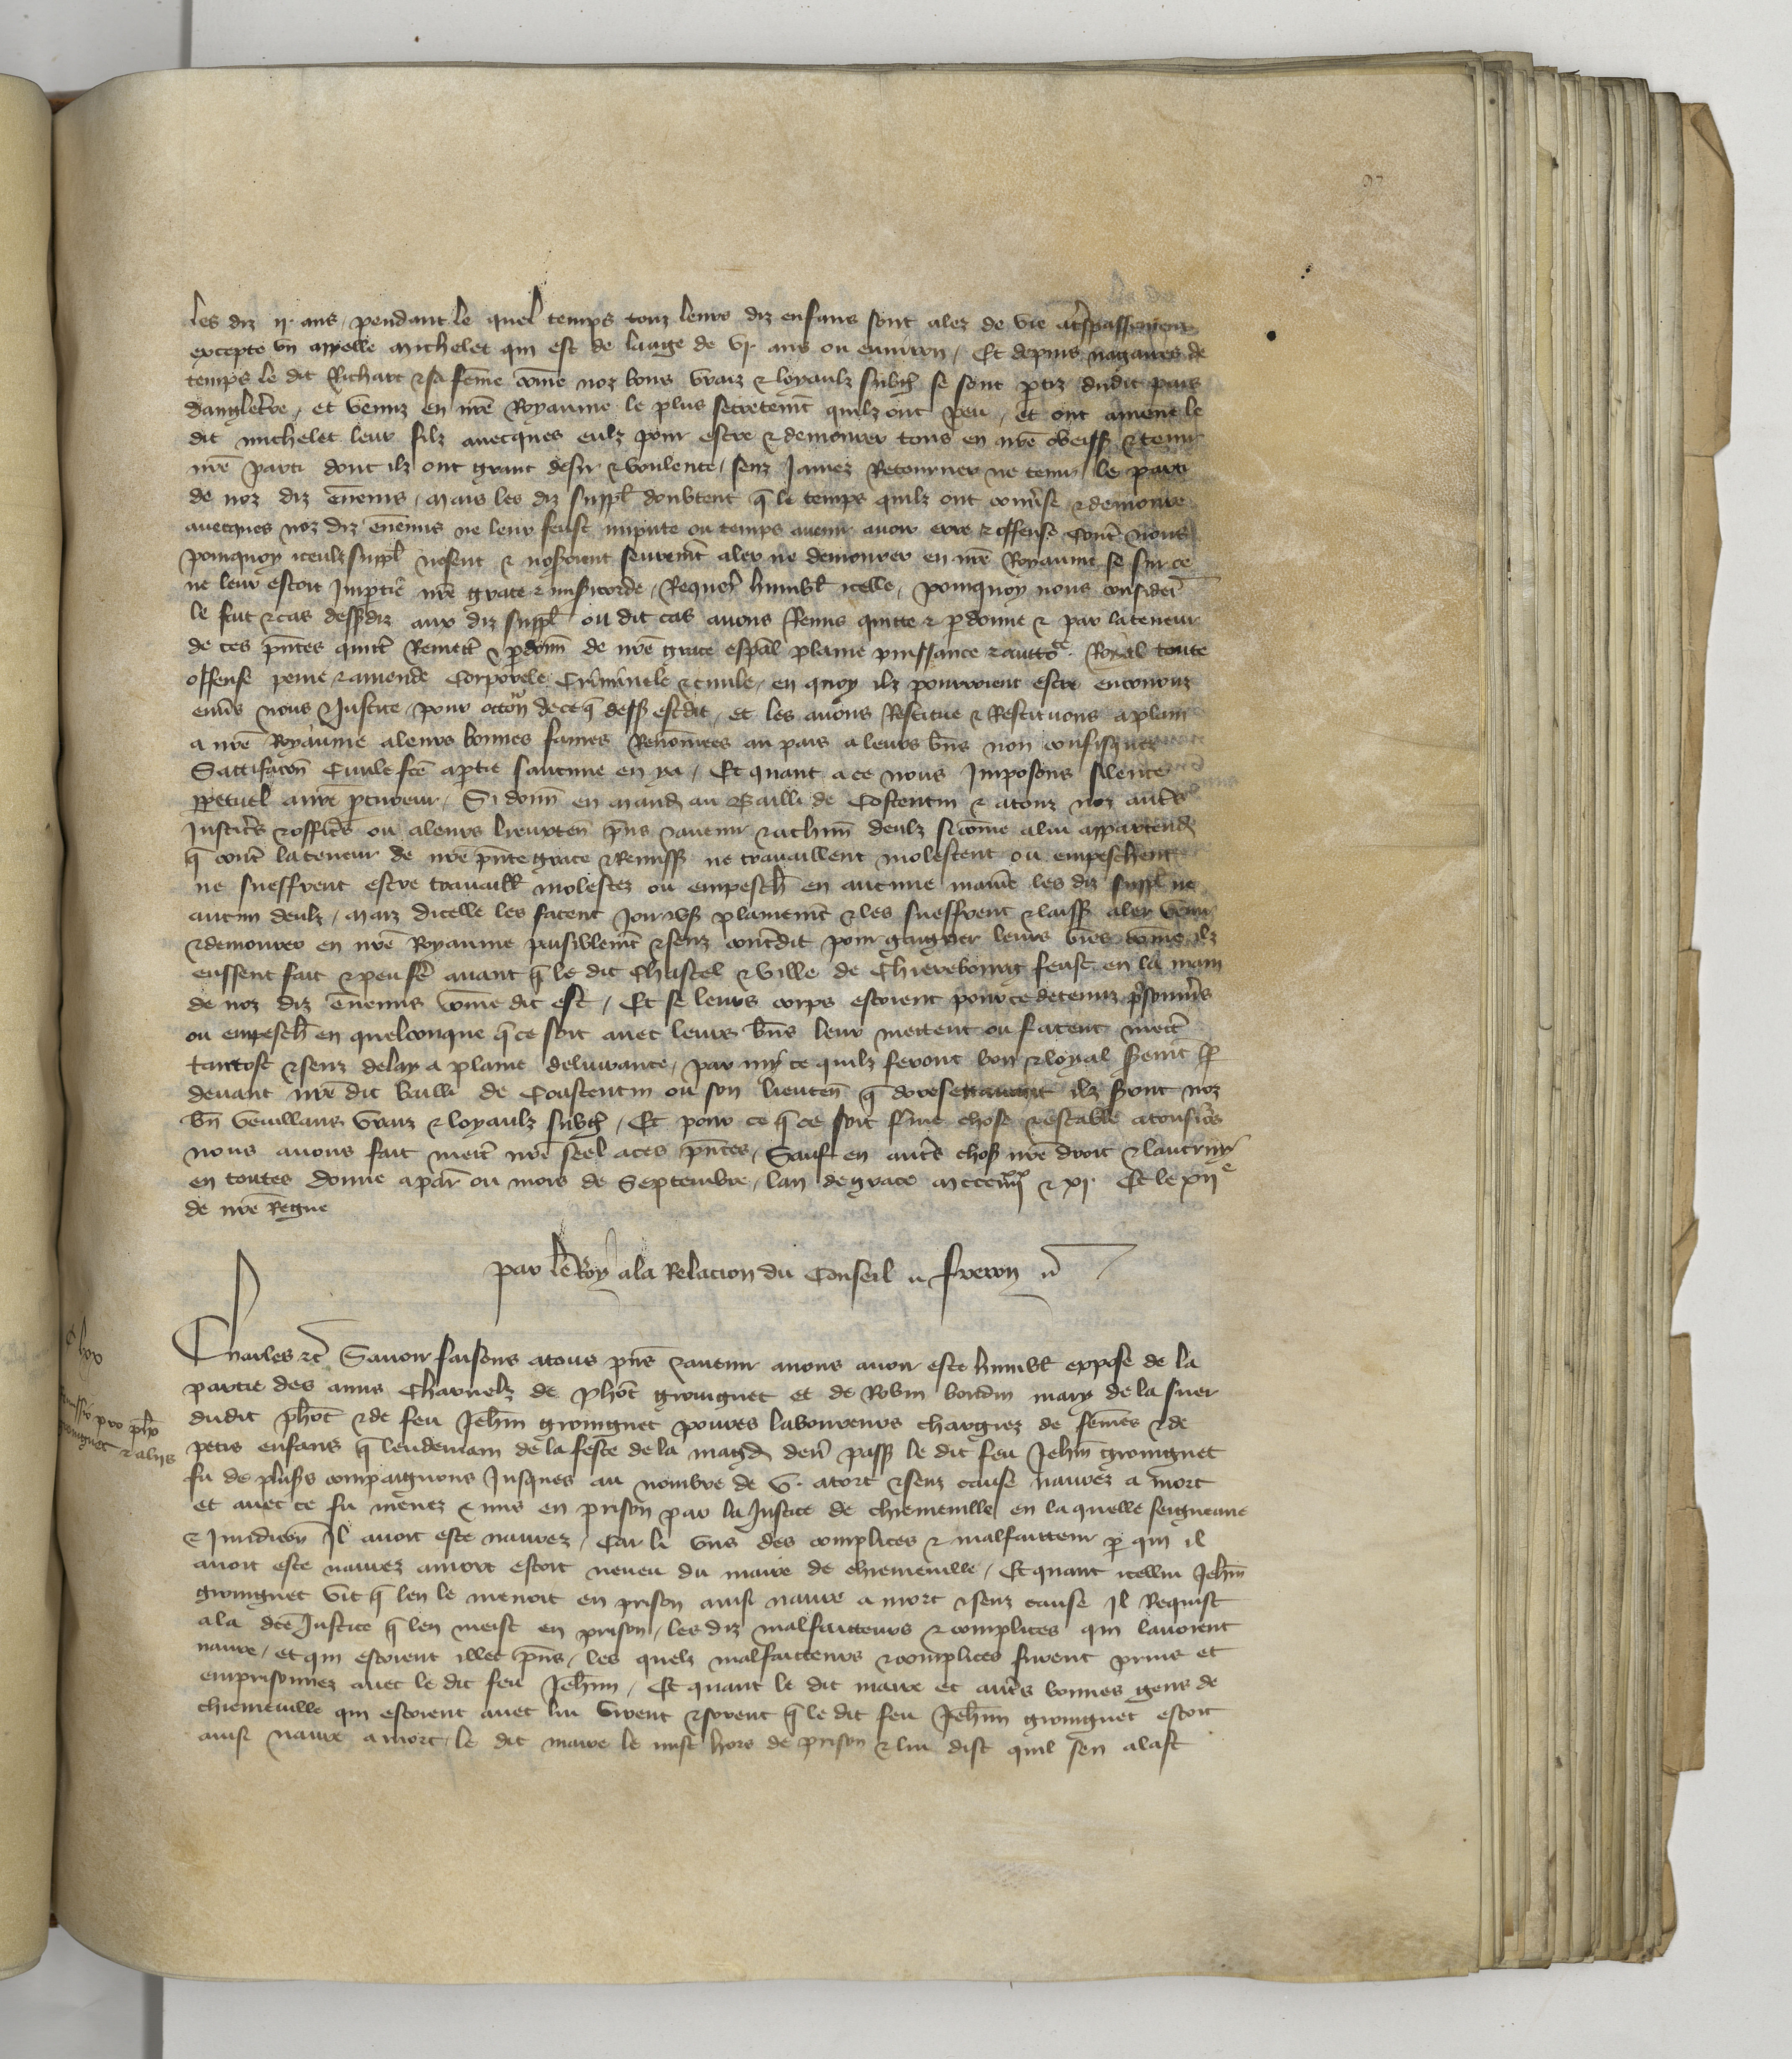 les diz ij. ans, pendant le quel temps touz leurs diz enfans sont alez de vie a tspassement
excepte vn appelle michelet qui est de laage de vj. ans ou enuiron, Et depuis nagaires de
temps le dit Richart & sa feme come noz bons vraiz & loyaulz subgz se sont ptiz dudit pais
dangletre, et venuz en nre Royaume le plus secretemt quilz ont peu, et ont amene le
dit michelet leur filz auecques eulz pour estre & demourer tous en nre obeiss & tenir
nre parti dont ilz ont grant desir & voulente, senz Jamez Retourner ne tenir le parti
de noz diz enemis, mais les diz suppl doubtent q le temps quilz ont conuse & demoure
auecques noz diz enemis ne leur feust impute ou temps auenir auoir erre & offense contre nous
pourquoy iceulx suppl nosent & noseroient seuremt aler ne demourer en nre Royaume se sur ce
ne leur estoit Imptie nre grace & misicorde, Requer humbl icelle, pourquoy nous consider
le fait & cas dessdiz aux diz suppl ou dit cas auons Remis quitte & pdonne & par la teneur
de ces pntes quitt Remett & pdonn de nre grace espal plaine puissance & auttorte Royal toute
offense peine & amende Corporele Criminele & ciuile, en quoy ilz pourroient estre encouruz
enuers nous & Justice, pour occon de ce q dess est dit, et les auons Restitue & Restituons a plain
a nre Royaume a leurs bonnes fames Renomees au pais a leurs bns non confisquez
Sattifacon Ciuile fce a ptie saucune en ya, Et quant a ce nous Imposons silence
ppetuel a nre pcureur, Si donn en mand au Bailli de Costentin & a touz noz autrs
Justicrs & officrs ou a leurs lieuxten pns & auenir & a chun deulz sicome a lui appartend
q contre la teneur de nre pnte grace & Remiss ne trauaillent molestent ou empeschent
ne sueffrent estre trauaill molestez ou empesch en aucune manie les diz suppl ne
aucun deulz, maiz dicelle les facent Jouir & vs plainemt & les sueffrent & laiss aler venir
& demourer en nre Royaume paisiblemt & senz contdit pour gaigner leurs vies come ilz
eussent fait & peu fe auant q le dit Chastel & ville de Chierebourg feust en la main
de noz diz enemis come dit est, Et se leurs corps estoient pour ce detenuz prisonnirs
ou empesch en quelconque q ce soit auec leurs bns leur mettent ou facent mett
tantost & senz delay a plaine deliurance, par my ce quilz feront bon & loyal sermt p
deuant nre dit bailli de Coustentin ou son lieuten q doresenauant ilz seront noz
bn vueillans vraiz & loyaulz subgz, Et pour ce q ce soit ferme chose & estable a tousiours
nous auons fait mett nre seel a ces pntes, Sauf en autrs chos nre droit & lautruy
en toutes donne a par ou mois de Septembre, lan de grace mccciiijxx & xj. Et le xije
de nre Regne
par le Roy a la Relacion du Conseil n freron n
Charles &c Sauoir faisons a tous pns & auenir auons auoir este humbl expose de la
partie des amis Charnelz de phot groingnet et de Robin bordin mary de la suer
dudit phot & de feu Jehn groingnet poures laboureurs chargiez de femes & de
petis enfans q lendemain de la feste de la magd derr pass le dit feu Jehn groingnet
fu de plusrs compaignons Jusques au nombre de v. a tort & senz cause naurez a mort
et auec ce fu menez & mis en prison par la Justice de chiemeuille en la quelle seigneurie
& Juridicon Il auoit este naurez, Car li vns des complices & malfaitteur p qui il
auoit este naurez a mort estoit neueu du maire de chiemeuille, Et quant icellui Jehn
groingnet vit q len le menoit en prison ainsi naure a mort & senz cause Il Requist
a la dce Justice q len meist en prison, les diz malfaitteurs & complices qui lauoient
naure, et qui estoient illec pns, les quelz malfaitteurs & complices furent prins et
emprisonnez auec le dit feu Jehnn, Et quant le dit maire et autrs bonnes gens de
chiemeuille qui estoient auec lui virent & sorent q le dit feu Jehnn groingnet estoit
ainsi naure a mort, le dit maire le mist hors de prison & lui dist quil sen alast
Remissio pro pho
groingnet & alijs